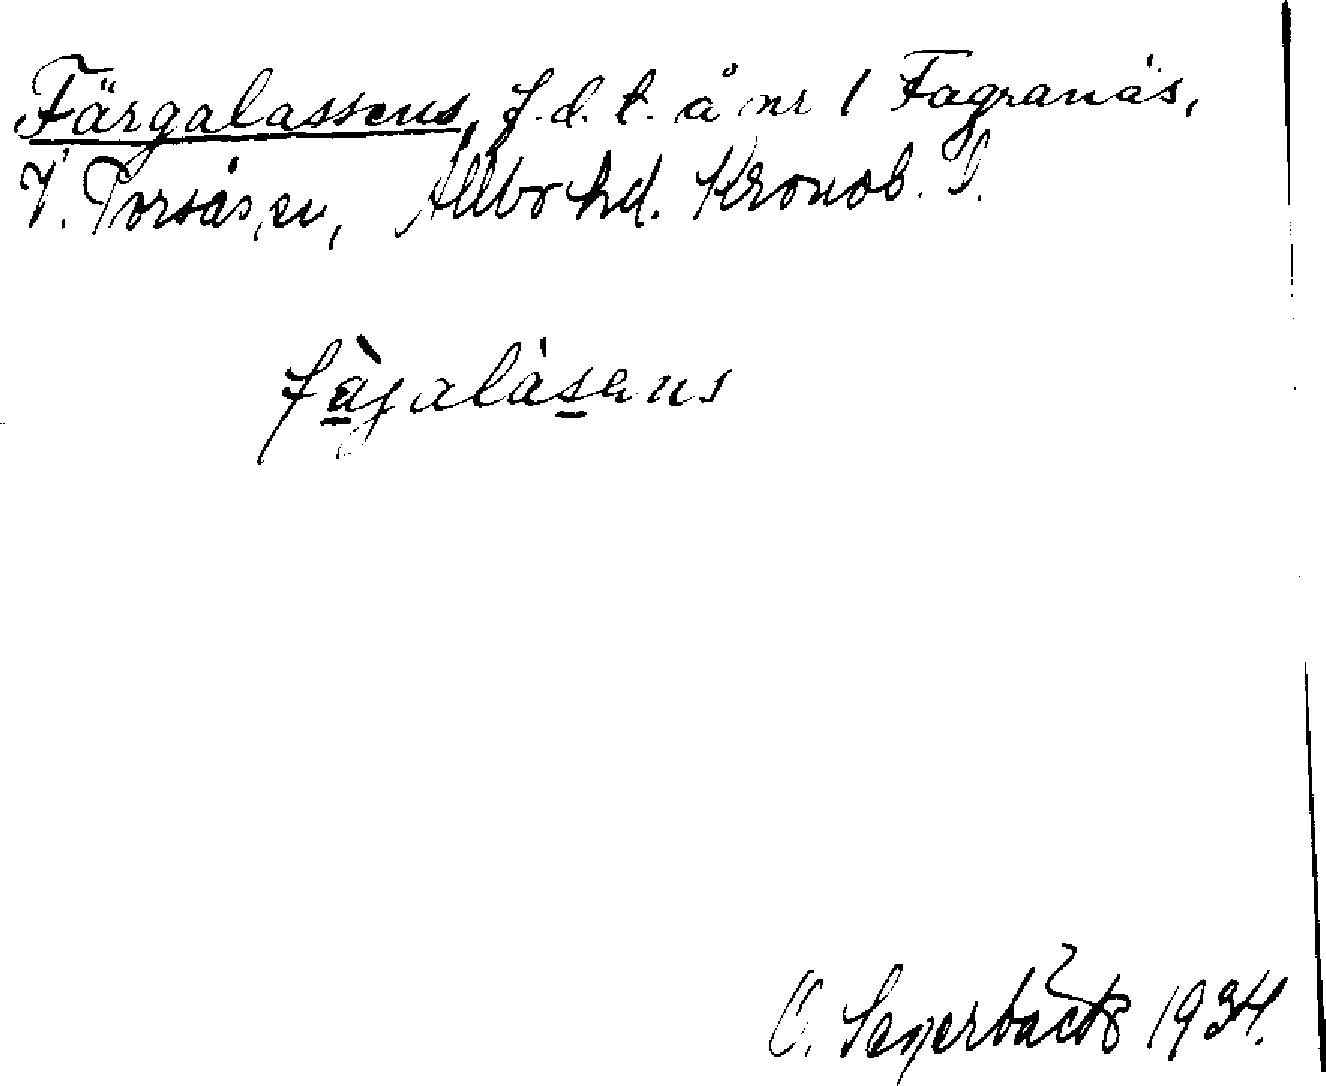 Färgalassens, f.d.t. å nr 1 Fagranäs,
V. Torsås sn, Allbo hd. Kronob. l.
fàgalàsens
1934.